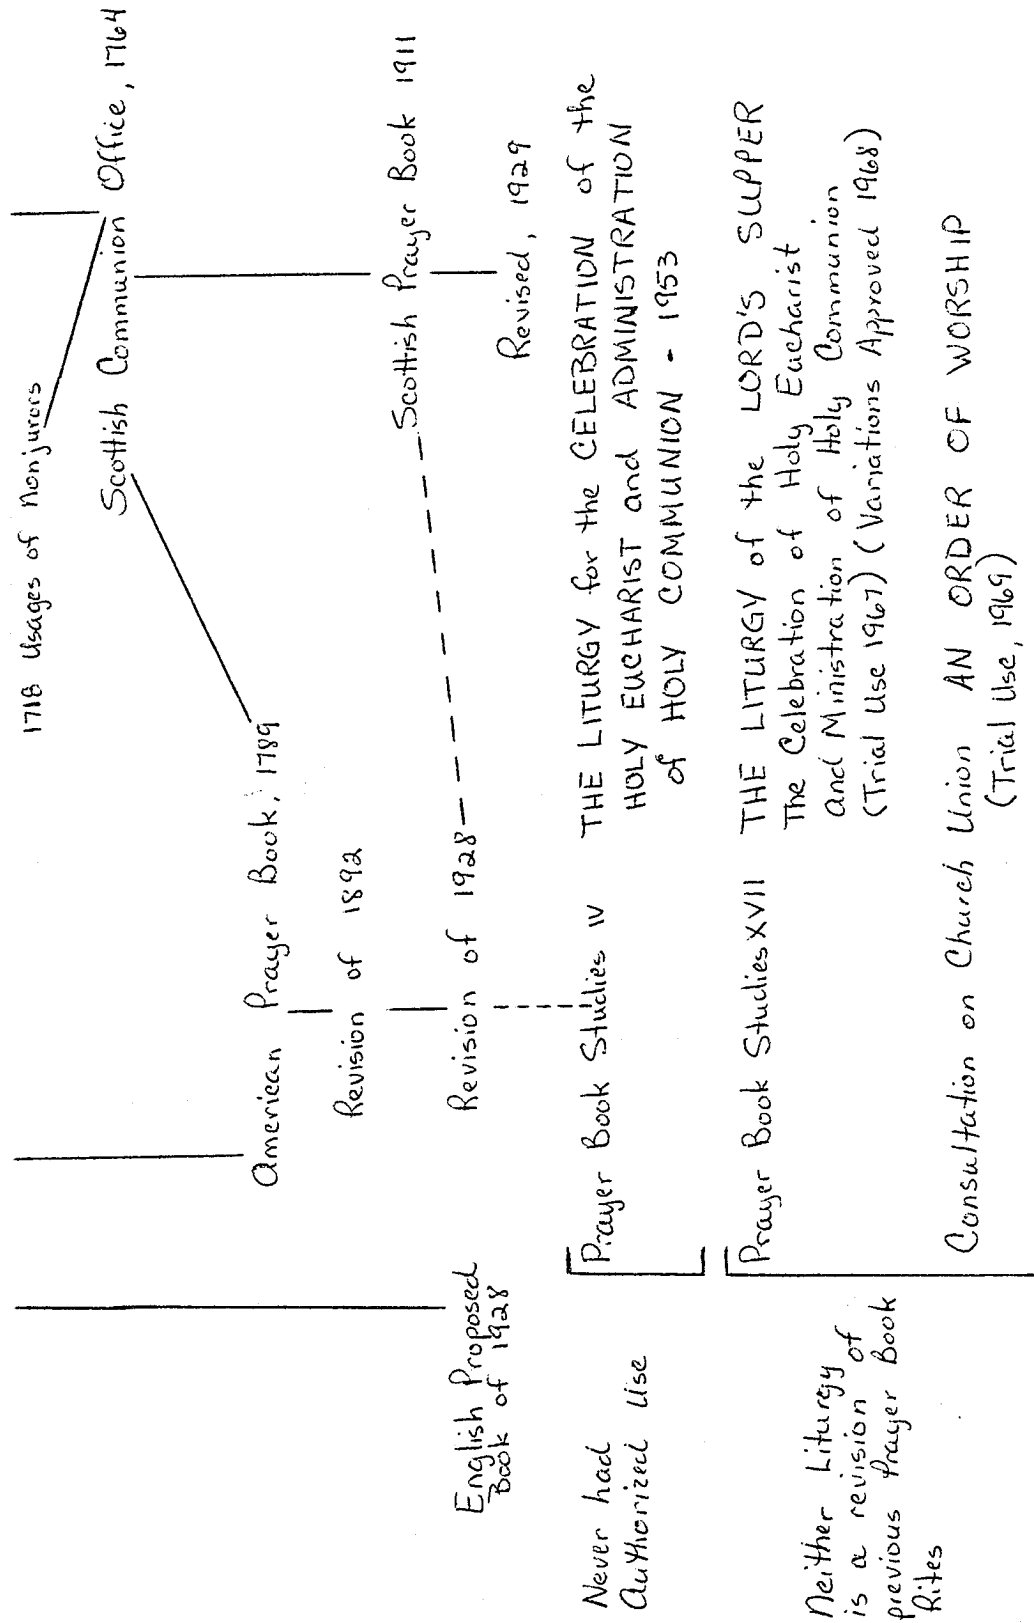 1718 Usages of Nonjurors
Scottish Communion Office, 1764
American Prayer Book, 1789
Revision of 1892
Scottish Prayer Book 1911
English Proposed
Book of 1928
Revision of 1928
Revised, 1929
Never had
Authorized Use
Prayer Book Studies IV
THE LITURGY for the CELEBRATION of the
HOLY EUCHARIST and ADMINISTRATION
of HOLY COMMUNION - 1953
Neither Liturgy
is a revision of
previous Prayer Book
Rites
Prayer Book Studies XVII
THE LITURGY of the LORD'S SUPPER
The Celebration of Holy Eucharist
and Ministration of Holy Communion
(Trial Use 1967) (Variations Approved 1968)
Consultation on Church Union AN ORDER OF WORSHIP
(Trial Use, 1969)